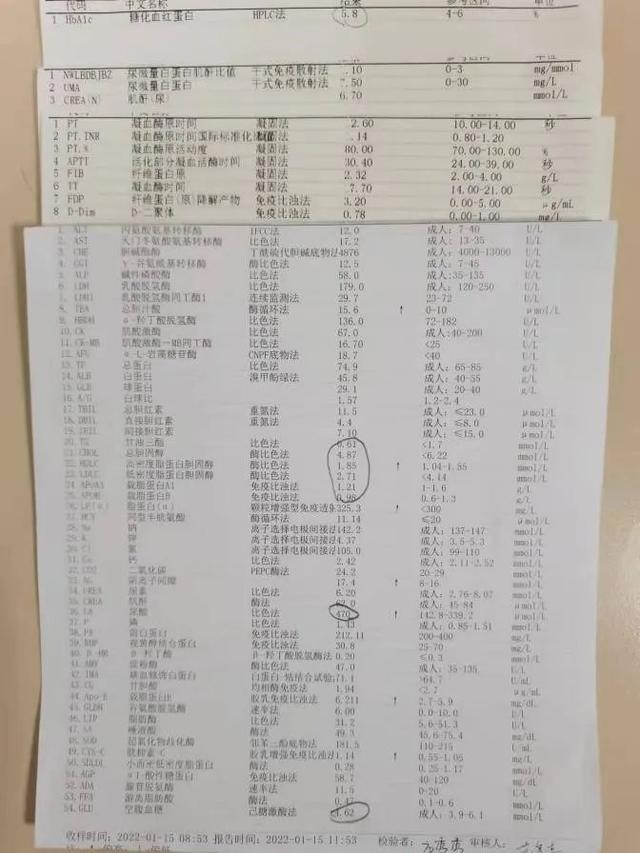 代码 中文名称 结果 参考区间 单位
1 HbA1c 糖化血红蛋白 HPLC法 5.8 4-6 %
1 NWLBDBJBZ 尿微量白蛋白肌酐比值 干式免疫散射法 .10 0-3 mg/mmol
2 UMA 尿微量白蛋白 干式免疫散射法 .50 0-30 mg/L
3 CREA(N) 肌酐(尿) 6.70 mmol/L
1 PT 凝血酶原时间 凝固法 2.60 10.00-14.00 秒
2 PT.INR 凝血酶原时间国际标准化 凝固法 .14 0.80-1.20
3 PT.% 凝血酶原活动度 凝固法 80.00 70.00-130.00 %
4 APTT 活化部分凝血活酶时间 凝固法 30.40 24.00-39.00 秒
5 FIB 纤维蛋白原 凝固法 2.32 2.00-4.00 g/L
6 TT 凝血酶时间 凝固法 7.70 14.00-21.00 秒
7 FDP 纤维蛋白(原)降解产物 免疫比浊法 3.20 0.00-5.00 μg/mL
8 D-Dim D-二聚体 免疫比浊法 0.78 0.00-1.00 mg/L
1. ALT 丙氨酸氨基转移酶 IFCC法 12.0 成人: 7-40 U/L
2. AST 天门冬氨酸氨基转移酶 比色法 17.2 成人: 13-35 U/L
3. CHE 胆碱酯酶 丁酰硫代胆碱底物法 4876 成人: 4000-13000 U/L
4. GGT γ-谷氨酰基转移酶 酶比色法 12.5 成人: 7-45 U/L
5. ALP 碱性磷酸酶 比色法 58.0 成人:35-135 U/L
6. LDH 乳酸脱氢酶 比色法 179.0 成人: 120-250 U/L
7. LDH1 乳酸脱氢酶同工酶1 连续监测法 29.7 23-72 U/L
8. TBA 总胆汁酸 酶循环法 15.6 ↑ 0-10 μmol/L
9. HBDH α-羟丁酸脱氢酶 136.0 72-182 U/L
10. CK 肌酸激酶 比色法 67.0 成人:40-200 U/L
11. CK-MB 肌酸激酶-MB同工酶 比色法 16.70 <25 U/L
12. AFU α-L-岩藻糖苷酶 CNPF底物法 18.7 <40 U/L
13. TP 总蛋白 比色法 74.9 成人: 65-85 g/L
14. ALB 白蛋白 溴甲酚绿法 45.8 成人: 40-55 g/L
15. GLB 球蛋白 29.1 成人: 20-40 g/L
16. A/G 白球比 1.57 1.2-2.4
17. TBIL 总胆红素 重氮法 11.5 成人: ≤23.0 μmol/L
18. DBIL 直接胆红素 重氮法 4.4 成人: ≤8.0 μmol/L
19. IBIL 间接胆红素 7.10 成人: ≤15.0 μmol/L
20. TG 甘油三酯 比色法 0.61 <1.7 mmol/L
21. CHOL 总胆固醇 酶比色法 4.87 <6.22 mmol/L
22. HDLC 高密度脂蛋白胆固醇 酶比色法 1.85 ↑ 1.04-1.55 mmol/L
23. LDLC 低密度脂蛋白胆固醇 酶比色法 2.71 <4.14 mmol/L
24. APOA1 载脂蛋白A1 免疫比浊法 1.21 1-1.6 g/L
25. APOB 载脂蛋白B 免疫比浊法 0.98 0.6-1.3 g/L
26. LP(α) 脂蛋白(α) 颗粒增强型免疫透射 325.3 ↑ <300 mg/L
27. HCY 同型半胱氨酸 酶循环法 11.14 ≤20 μmol/L
28. Na 钠 离子选择电极间接法 142.2 成人: 137-147 mmol/L
29. K 钾 离子选择电极间接法 4.37 成人: 3.5-5.3 mmol/L
30. Cl 氯 离子选择电极间接法 105.0 成人: 99-110 mmol/L
31. Ca 钙 比色法 2.42 成人: 2.11-2.52 mmol/L
32. CO2 二氧化碳 PEPC酶法 24.2 20-29 mmol/L
33. AG 阴离子间隙 17.4 ↑ 8-16 mmol/L
34. UREA 尿素 比色法 6.20 成人: 2.76-8.07 mmol/L
35. CREA 肌酐 酶法 成人: 45-84 μmol/L
36. UA 尿酸 比色法 470 ↑ 142.8-339.2 μmol/L
37. P 磷 比色法 1.43 成人: 0.85-1.51 mmol/L
38. PA 前白蛋白 免疫比浊法 212.11 200-400 mg/L
39. RBP 视黄醇结合蛋白 免疫比浊法 30.8 25-70 mg/L
40. β-HB β-羟丁酸 β-羟丁酸脱氢酶法 0.20 ≤0.3 mmol/L
41. AMY 淀粉酶 酶比色法 47.0 成人: 35-135 U/L
42. IMA 缺血修饰白蛋白 白蛋白-钴结合试验 71.1 >64.7 U/mL
43. CG 甘胆酸 均相酶免疫法 1.94 <2.7 μg/mL
44. Apo-E 载脂蛋白E 胶乳免疫比浊法 6.211 ↑ 2.7-5.9 mg/dL
45. GLDH 谷氨酸脱氢酶 速率法 6.00 0.0-10.0 U/L
46. LIP 脂肪酶 比色法 31.2 5.6-51.3 U/L
47. SA 唾液酸 酶法 49.3 45.6-75.4 mg/dL
48. SOD 超氧化物歧化酶 邻苯三酚底物法 181.5 110-215 U/mL
49. CYS-C 胱抑素-C 胶乳增强免疫比浊法 1.14 ↑ 0.55-1.05 mg/L
50. SDLDL 小而密低密度脂蛋白 酶法 0.28 0.25-1.17 mmol/L
51. AGP α1-酸性糖蛋白 免疫比浊法 58.7 40-120 mg/dL
52. ADA 腺苷脱氨酶 速率法 11.5 0-20 U/L
53. FFA 游离脂肪酸 酶法 0.47 0.1-0.6 mmol/L
54. GLU 空腹血糖 己糖激酶法 4.62 成人: 3.9-6.1 mmol/L
收样时间: 2022-01-15 08:53 报告时间: 2022-01-15 11:53 检验者: 审核人: